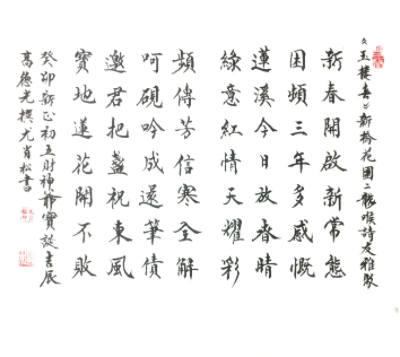 《玉樓春》新拾花園二龍喉詩友雅聚
新春開啟新常態
困頓三年多感慨
蓮溪今日放春晴
綠意紅情天耀彩
頻傳芳信寒全解
呵硯吟成還筆債
邀君把盞祝東風
寶地蓮花開不敗
癸卯新正初五財神爺寶誕吉辰
高德光撰尤肖松書